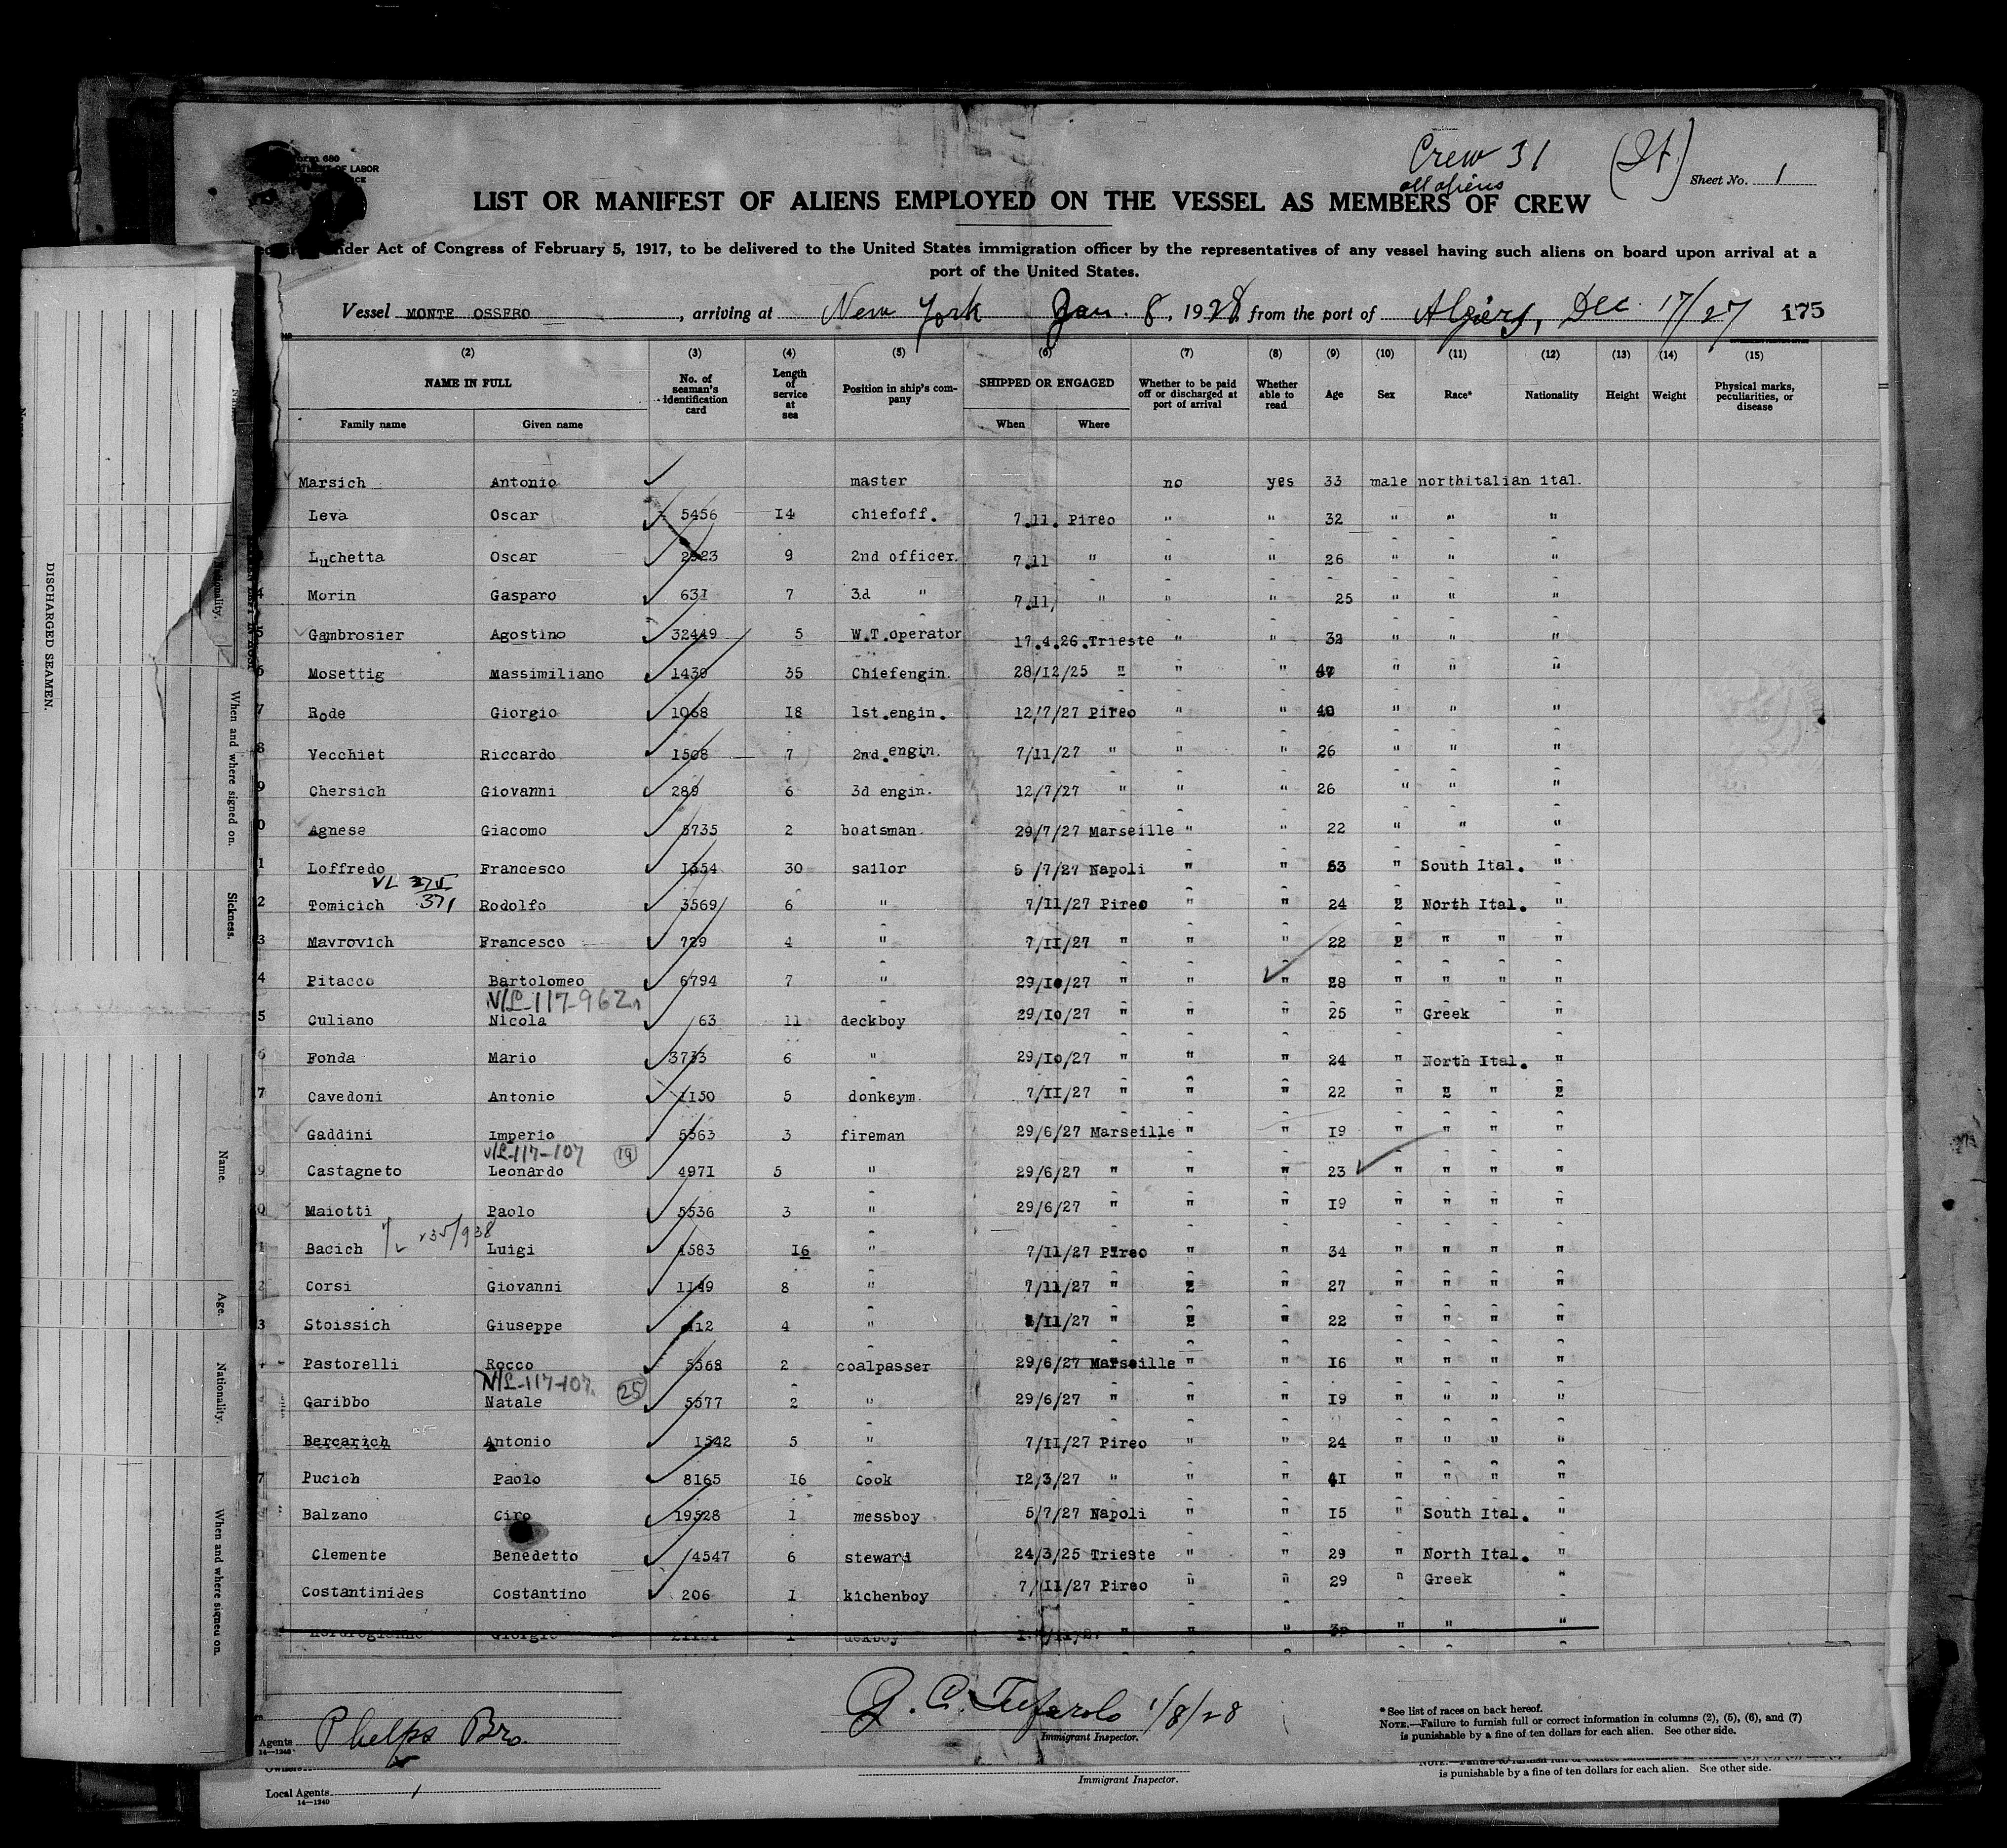 Crew 31 (It)
all aliens
Sheet No. 1
LIST OR MANIFEST OF ALIENS EMPLOYED ON THE VESSEL AS MEMBERS OF CREW
under Act of Congress of February 5, 1917, to be delivered to the United States immigration officer by the representatives of any vessel having such aliens on board upon arrival at a
port of the United States.
Vessel MONTE OSSERO, arriving at New York Jan. 8, 1928, from the port of Algiers, Dec 17/27 175
(2) (3) (4) (5) (6) (7) (8) (9) (10) (11) (12) (13) (14) (15)
NAME IN FULL No. of seaman's identification card Length of service at sea Position in ship's company SHIPPED OR ENGAGED Whether to be paid off or discharged at port of arrival Whether able to read Age Sex Race* Nationality Height Weight Physical marks, peculiarities, or disease
Family name Given name When Where
Marsich Antonio master no yes 33 male northitalian ital.
Leva Oscar 5456 14 chiefoff. 7.11. Pireo " " 32 " " "
Luchetta Oscar 2923 9 2nd officer. 7.11 " " " 26 " " "
4 Morin Gasparo 631 7 3d " 7.11 " " " 25 " " "
5 Gambrosier Agostino 32449 5 W.T.operator 17.4.26.Trieste " " 32 " " "
6 Mosettig Massimiliano 1439 35 Chiefengin. 28/12/25 " " " 47 " " "
7 Rode Giorgio 1068 18 1st.engin. 12/7/27 Pireo " " 40 " " "
8 Vecchiet Riccardo 1508 7 2nd.engin. 7/11/27 " " " 26 " " "
9 Chersich Giovanni 289 6 3d engin. 12/7/27 " " " 26 " " "
0 Agnese Giacomo 5735 2 boatsman. 29/7/27 Marseille " " 22 " " "
1 Loffredo Francesco 1354 30 sailor 5 /7/27 Napoli " " 53 " South Ital. "
2 Tomicich 371 Rodolfo 3569 6 " 7/11/27 Pireo " " 24 " North Ital. "
3 Mavrovich Francesco 729 4 " 7/11/27 " " " 22 " " " "
4 Pitacco Bartolomeo 6794 7 " 29/10/27 " " " 28 " " " "
V/L-117-962
5 Culiano Nicola 63 11 deckboy 29/10/27 " " " 25 " Greek "
6 Fonda Mario 3733 6 " 29/10/27 " " " 24 " North Ital. "
7 Cavedoni Antonio 1150 5 donkeym. 7/11/27 " " " 22 " " " "
Gaddini Imperio 5563 3 fireman 29/6/27 Marseille " " 19 " " " "
V/L-117-107 19
9 Castagneto Leonardo 4971 5 " 29/6/27 " " " 23 " " " "
0 Maiotti Paolo 5536 3 " 29/6/27 " " " 19 " " " "
1 Bacich Luigi 4583 16 " 7/11/27 Pireo " " 34 " " " "
2 Corsi Giovanni 1149 8 " 7/11/27 " " " 27 " " " "
3 Stoissich Giuseppe 4 " /11/27 " " " 22 " " " "
Pastorelli Rocco 5568 2 coalpasser 29/6/27 Marseille " " 16 " " " "
V/L-117-107. 25
Garibbo Natale 5577 2 " 29/6/27 " " " 19 " " " "
Bercarich Antonio 1542 5 " 7/11/27 Pireo " " 24 " " " "
7 Pucich Paolo 8165 16 Cook 12/3/27 " " " 41 " " " "
Balzano Ciro 19528 1 messboy 5/7/27 Napoli " " 15 " South Ital. "
Clemente Benedetto 4547 6 steward 24/3/25 Trieste " " 29 " North Ital. "
Costantinides Costantino 206 1 kichenboy 7/11/27 Pireo " " 29 " Greek "
Giorgio
Agents Phelps Bro.
14—1240
1/8/28
Immigrant Inspector.
* See list of races on back hereof.
NOTE.—Failure to furnish full or correct information in columns (2), (5), (6), and (7)
is punishable by a fine of ten dollars for each alien. See other side.
is punishable by a fine of ten dollars for each alien. See other side.
Immigrant Inspector.
Local Agents
14—1240
DISCHARGED SEAMEN.
Nationality.
When and where signed on.
Sickness.
Name.
Age.
Nationality.
When and where signed on.